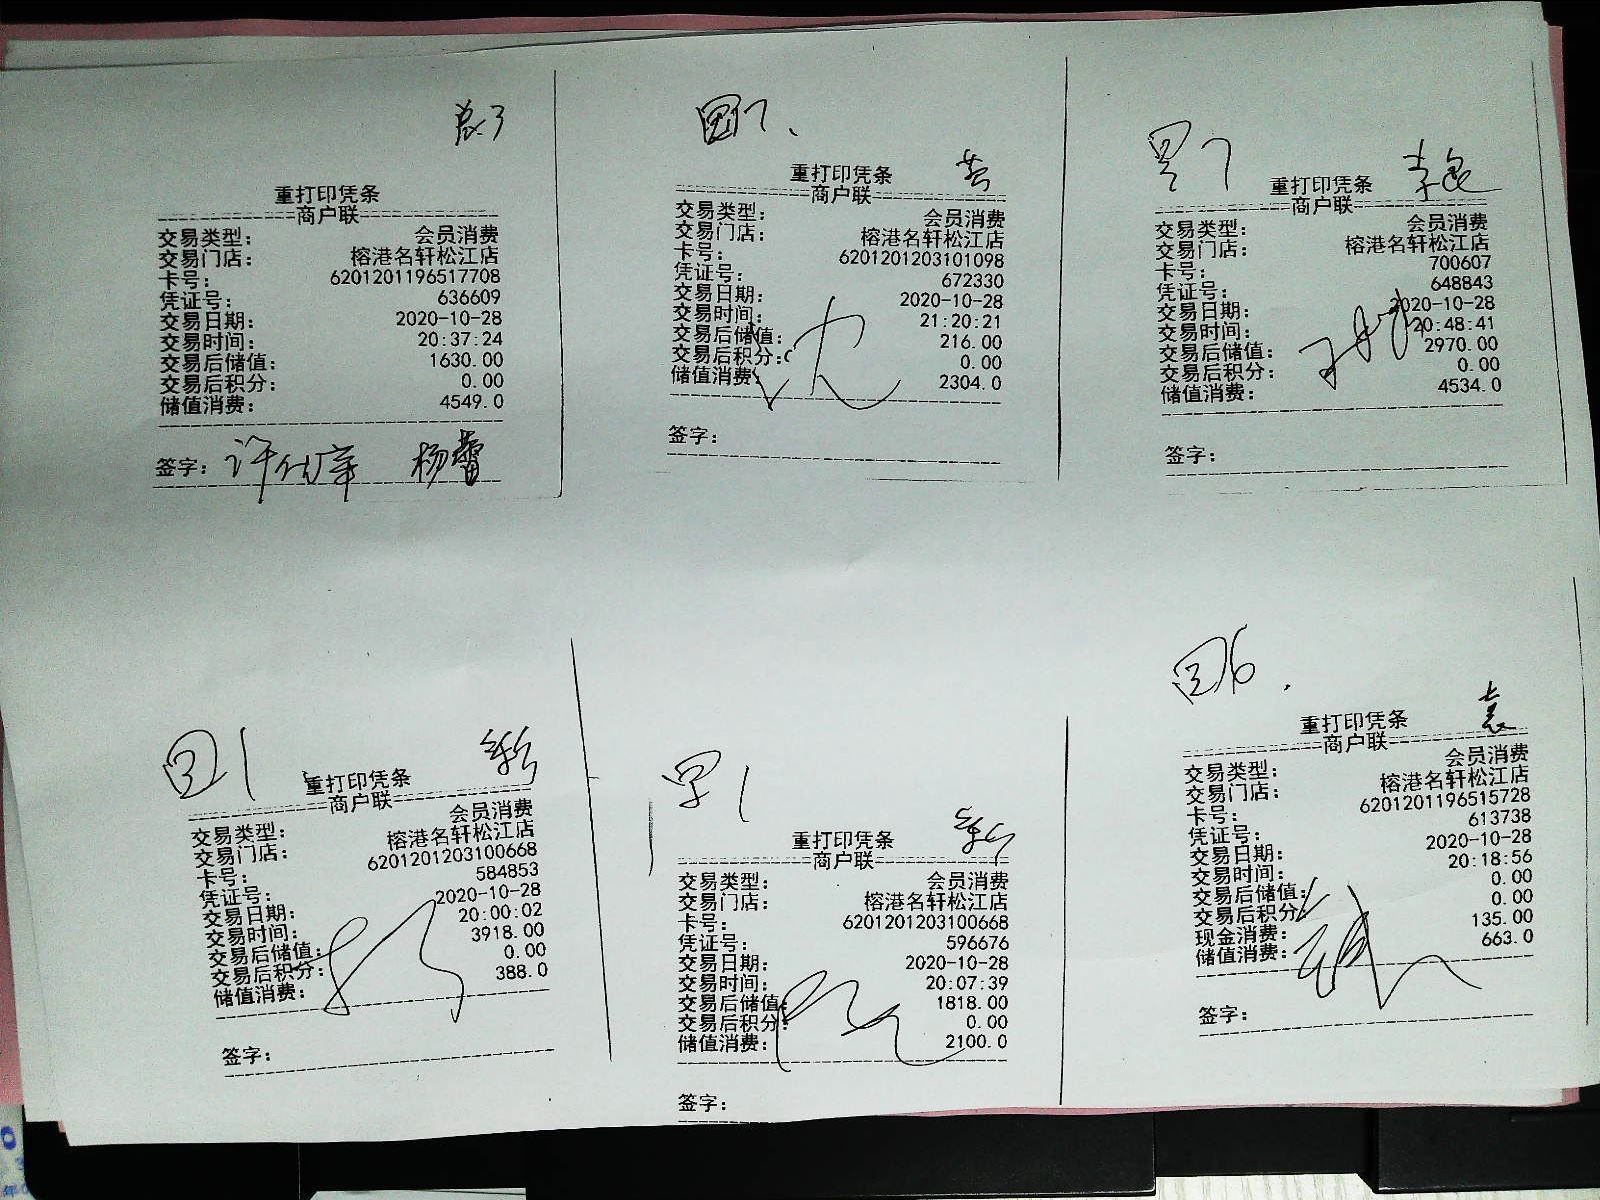 重打印凭条
商户联
交易类型: 会员消费
交易门店: 榕港名轩松江店
卡号: 6201201196517708
凭证号: 636609
交易日期: 2020-10-28
交易时间: 20:37:24
交易后储值: 1630.00
交易后积分: 0.00
储值消费: 4549.0
签字: 杨蕾
重打印凭条 黄
商户联
交易类型: 会员消费
交易门店: 榕港名轩松江店
卡号: 6201201203101098
凭证号: 672330
交易日期: 2020-10-28
交易时间: 21:20:21
交易后储值: 216.00
交易后积分: 0.00
储值消费: 2304.0
签字:
重打印凭条
商户联
交易类型: 会员消费
交易门店: 榕港名轩松江店
卡号: 700607
凭证号: 648843
交易日期: 2020-10-28
交易时间: 20:48:41
交易后储值: 2970.00
交易后积分: 0.00
储值消费: 4534.0
签字:
重打印凭条
商户联
交易类型: 会员消费
交易门店: 榕港名轩松江店
卡号: 6201201203100668
凭证号: 584853
交易日期: 2020-10-28
交易时间: 20:00:02
交易后储值: 3918.00
交易后积分: 0.00
储值消费: 388.0
签字:
重打印凭条
商户联
交易类型: 会员消费
交易门店: 榕港名轩松江店
卡号: 6201201203100668
凭证号: 596676
交易日期: 2020-10-28
交易时间: 20:07:39
交易后储值: 1818.00
交易后积分: 0.00
储值消费: 2100.0
签字:
重打印凭条 袁
商户联
交易类型: 会员消费
交易门店: 榕港名轩松江店
卡号: 6201201196515728
凭证号: 613738
交易日期: 2020-10-28
交易时间: 20:18:56
交易后储值: 0.00
交易后积分: 0.00
现金消费: 135.00
储值消费: 663.0
签字: